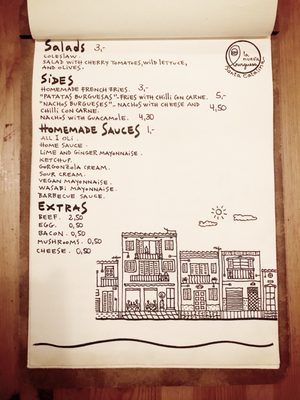 Salads 3,-
COLESLAW
SALAD WITH CHERRY TOMATOES, WILD LETTUCE,
AND OLIVES.
SiDES
HOMEMADE FRENCH FRIES. 3,-
"PATATAS BURGUESAS"-FRIES WITH CHILLI CON CARNE. 5,-
"NACHOS BURGUESES"- NACHOS WITH CHEESE AND
CHILLI CON CARNE. 4,50
NACHOS WITH GUACAMOLE. 4,30
HOMEMADE SAUCES 1,-
ALL I OLI.
HOME SAUCE.
LIME AND GINGER MAYONNAISE.
KETCHUP.
GORGONZOLA CREAM.
SOUR CREAM.
VEGAN MAYONNAISE.
WASABI MAYONNAISE.
BARBECUE SAUCE.
EXTRAS
BEEF. 2,50
EGG. 0,50
BACON. 0,50
MUSHROOMS. 0,50
CHEESE. 0,50
la
nueva
burguesa
Santa Catalina